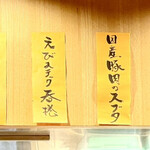 国産豚肉のスブタ
えびステク春捲